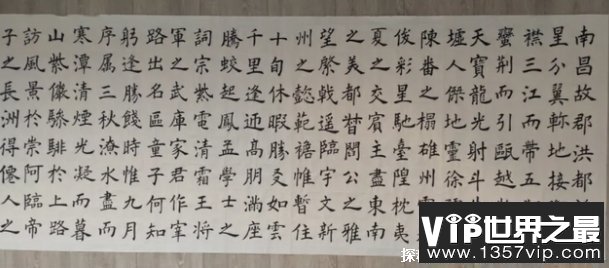 南昌故郡洪都
星分翼軫地接
襟三江而帶五
蠻荊而引甌越
天寶龍光射斗牛
墟人傑地靈徐孺
陳蕃之榻雄州
俊彩星馳臺隍枕夷
夏之交賓主盡東南
之美都督閻公之雅
望棨戟遙臨宇文新
州之懿範襜帷暫住
十旬休暇勝友如雲
千里逢迎高朋滿座
騰蛟起鳳孟學士之
詞宗紫電清霜王將
軍之武庫家君作宰
路出名區童子何知
躬逢勝餞時惟九月
序屬三秋潦水盡而
寒潭清煙光凝而暮
山紫儼驂騑於上路
訪風景於崇阿臨帝
子之長洲得僊人之
VIP世界之最
www.1357vip.com